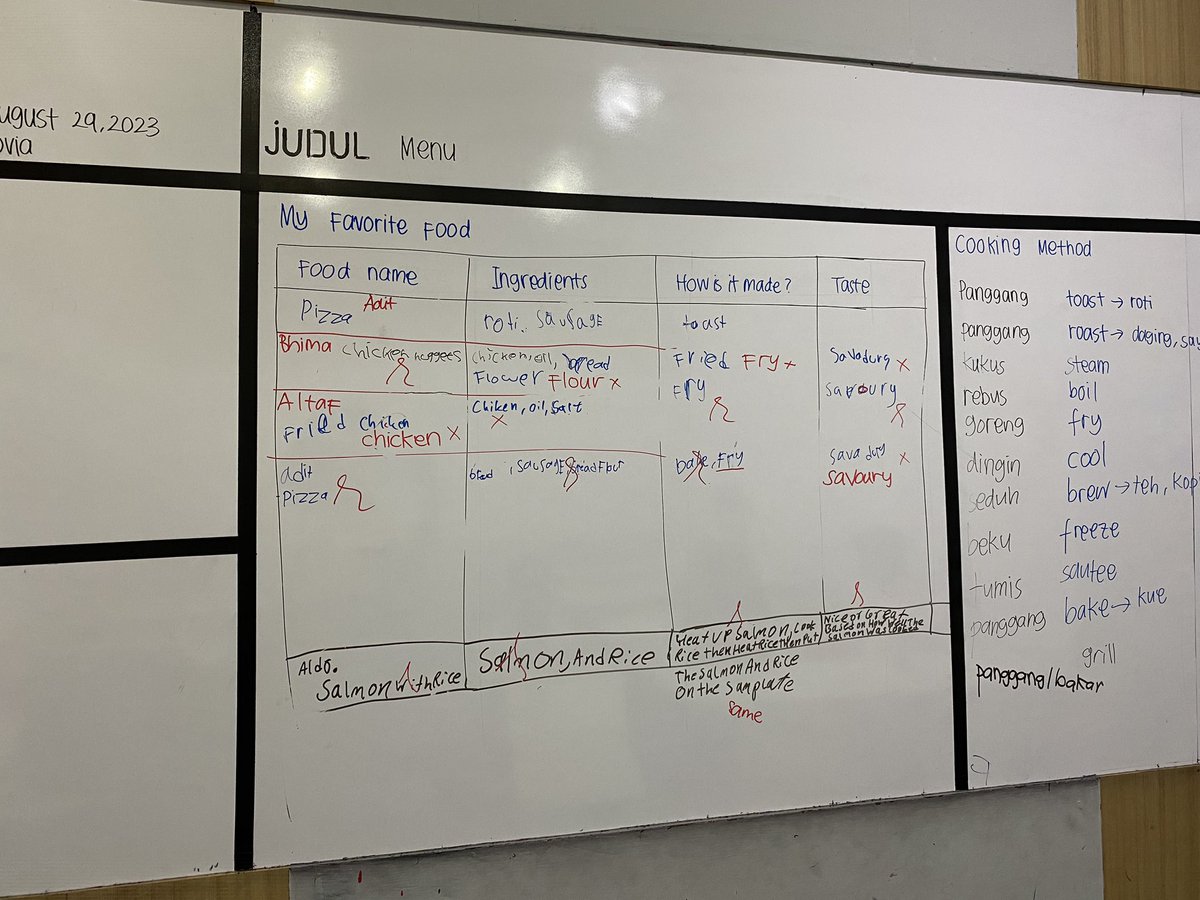 ugust 29, 2023
ovia
JUDUL Menu
My Favorite Food
Food name
Ingredients
How is it made?
Taste
Pizza Adit
roti, sausage
toast
Bhima chicken nuggets
chicken, oil, bread
Flower Flour x
Fried Fry x
Fry
Savadury x
Savoury
Altaf
Fried Chicken
chicken x
Chiken, oil, Salt
x
adit
Pizza
bred , sausage, bread Flour
bake, Fry
Savadury x
Savoury
Aldo.
Salmon with Rice
Salmon, And Rice
Heat UP Salmon, Cook
Rice then Heat Rice then Put
The Salmon And Rice
On the Sam plate
Same
Nice or Great
Based on How Well The
Salmon Was Cooked
Cooking Method
Panggang toast → roti
panggang roast → daging, say
kukus steam
rebus boil
goreng fry
dingin cool
seduh brew → teh, kopi
beku freeze
tumis sautee
panggang bake → kue
grill
panggang/bakar